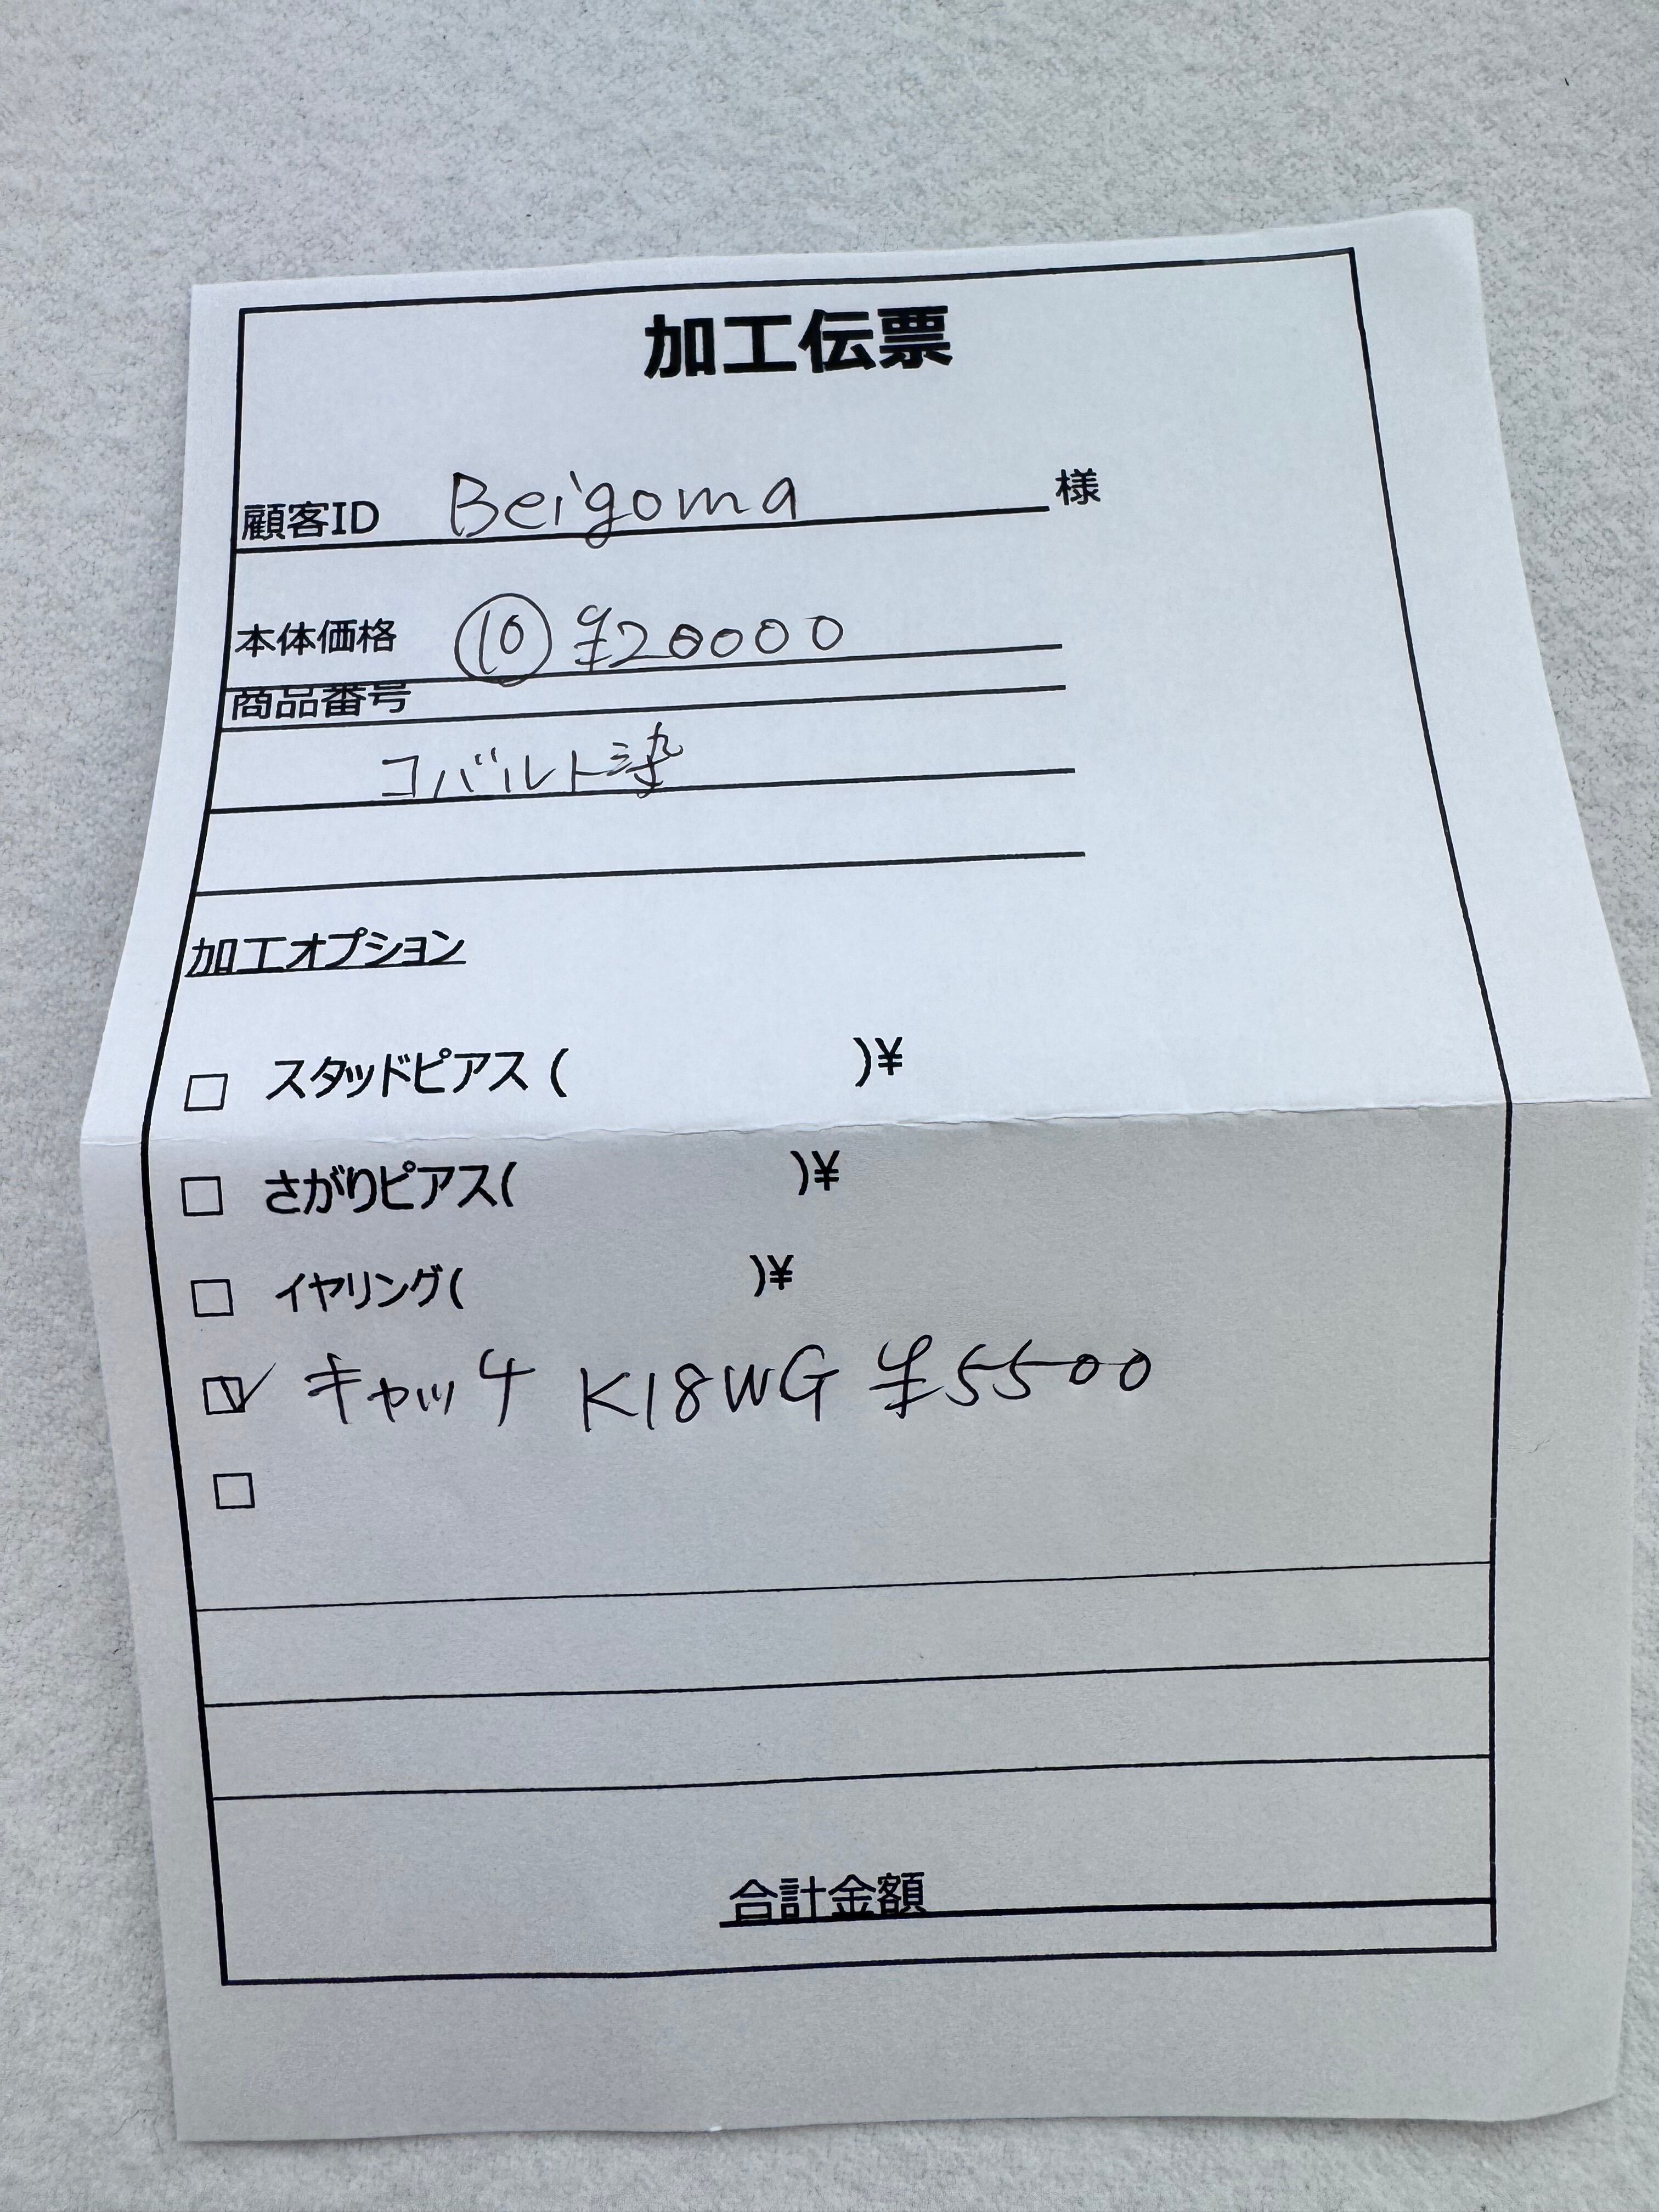 加工伝票
顧客ID Beigoma 様
本体価格 ⑩ ¥20000
商品番号
コバルト染
加工オプション
□ スタッドピアス ( )¥
□ さがりピアス( )¥
□ イヤリング( )¥
☑ キャッチ K18WG ¥5500
□
合計金額